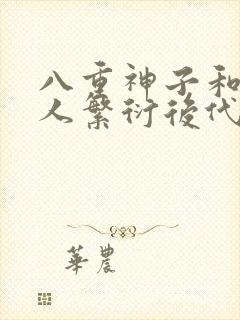 八重神子和
人繁衍後代
華農